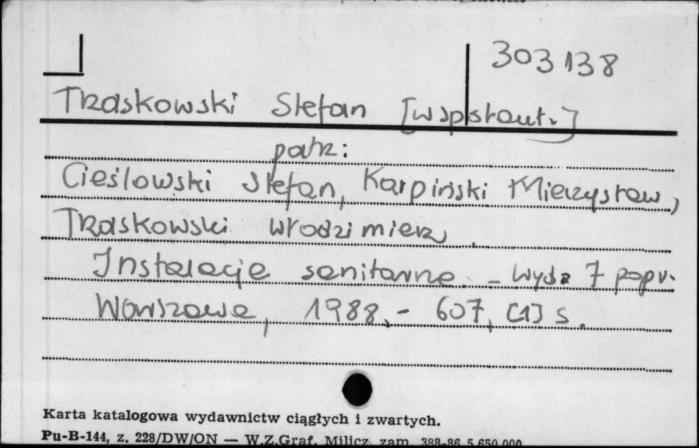 303138
Traskowski Stefan [współaut.]
patrz:
Cieślowski Stefan, Karpiński Mieczysław,
Traskowski Włodzimierz.
Instalacje sanitarne. - Wyd. 7 popr.
Warszawa, 1988. - 607, [1] s.
Karta katalogowa wydawnictw ciągłych i zwartych.
Pu-B-144, z. 228/DW/ON — W.Z.Graf. Milicz, zam. 388-86 5.650.000